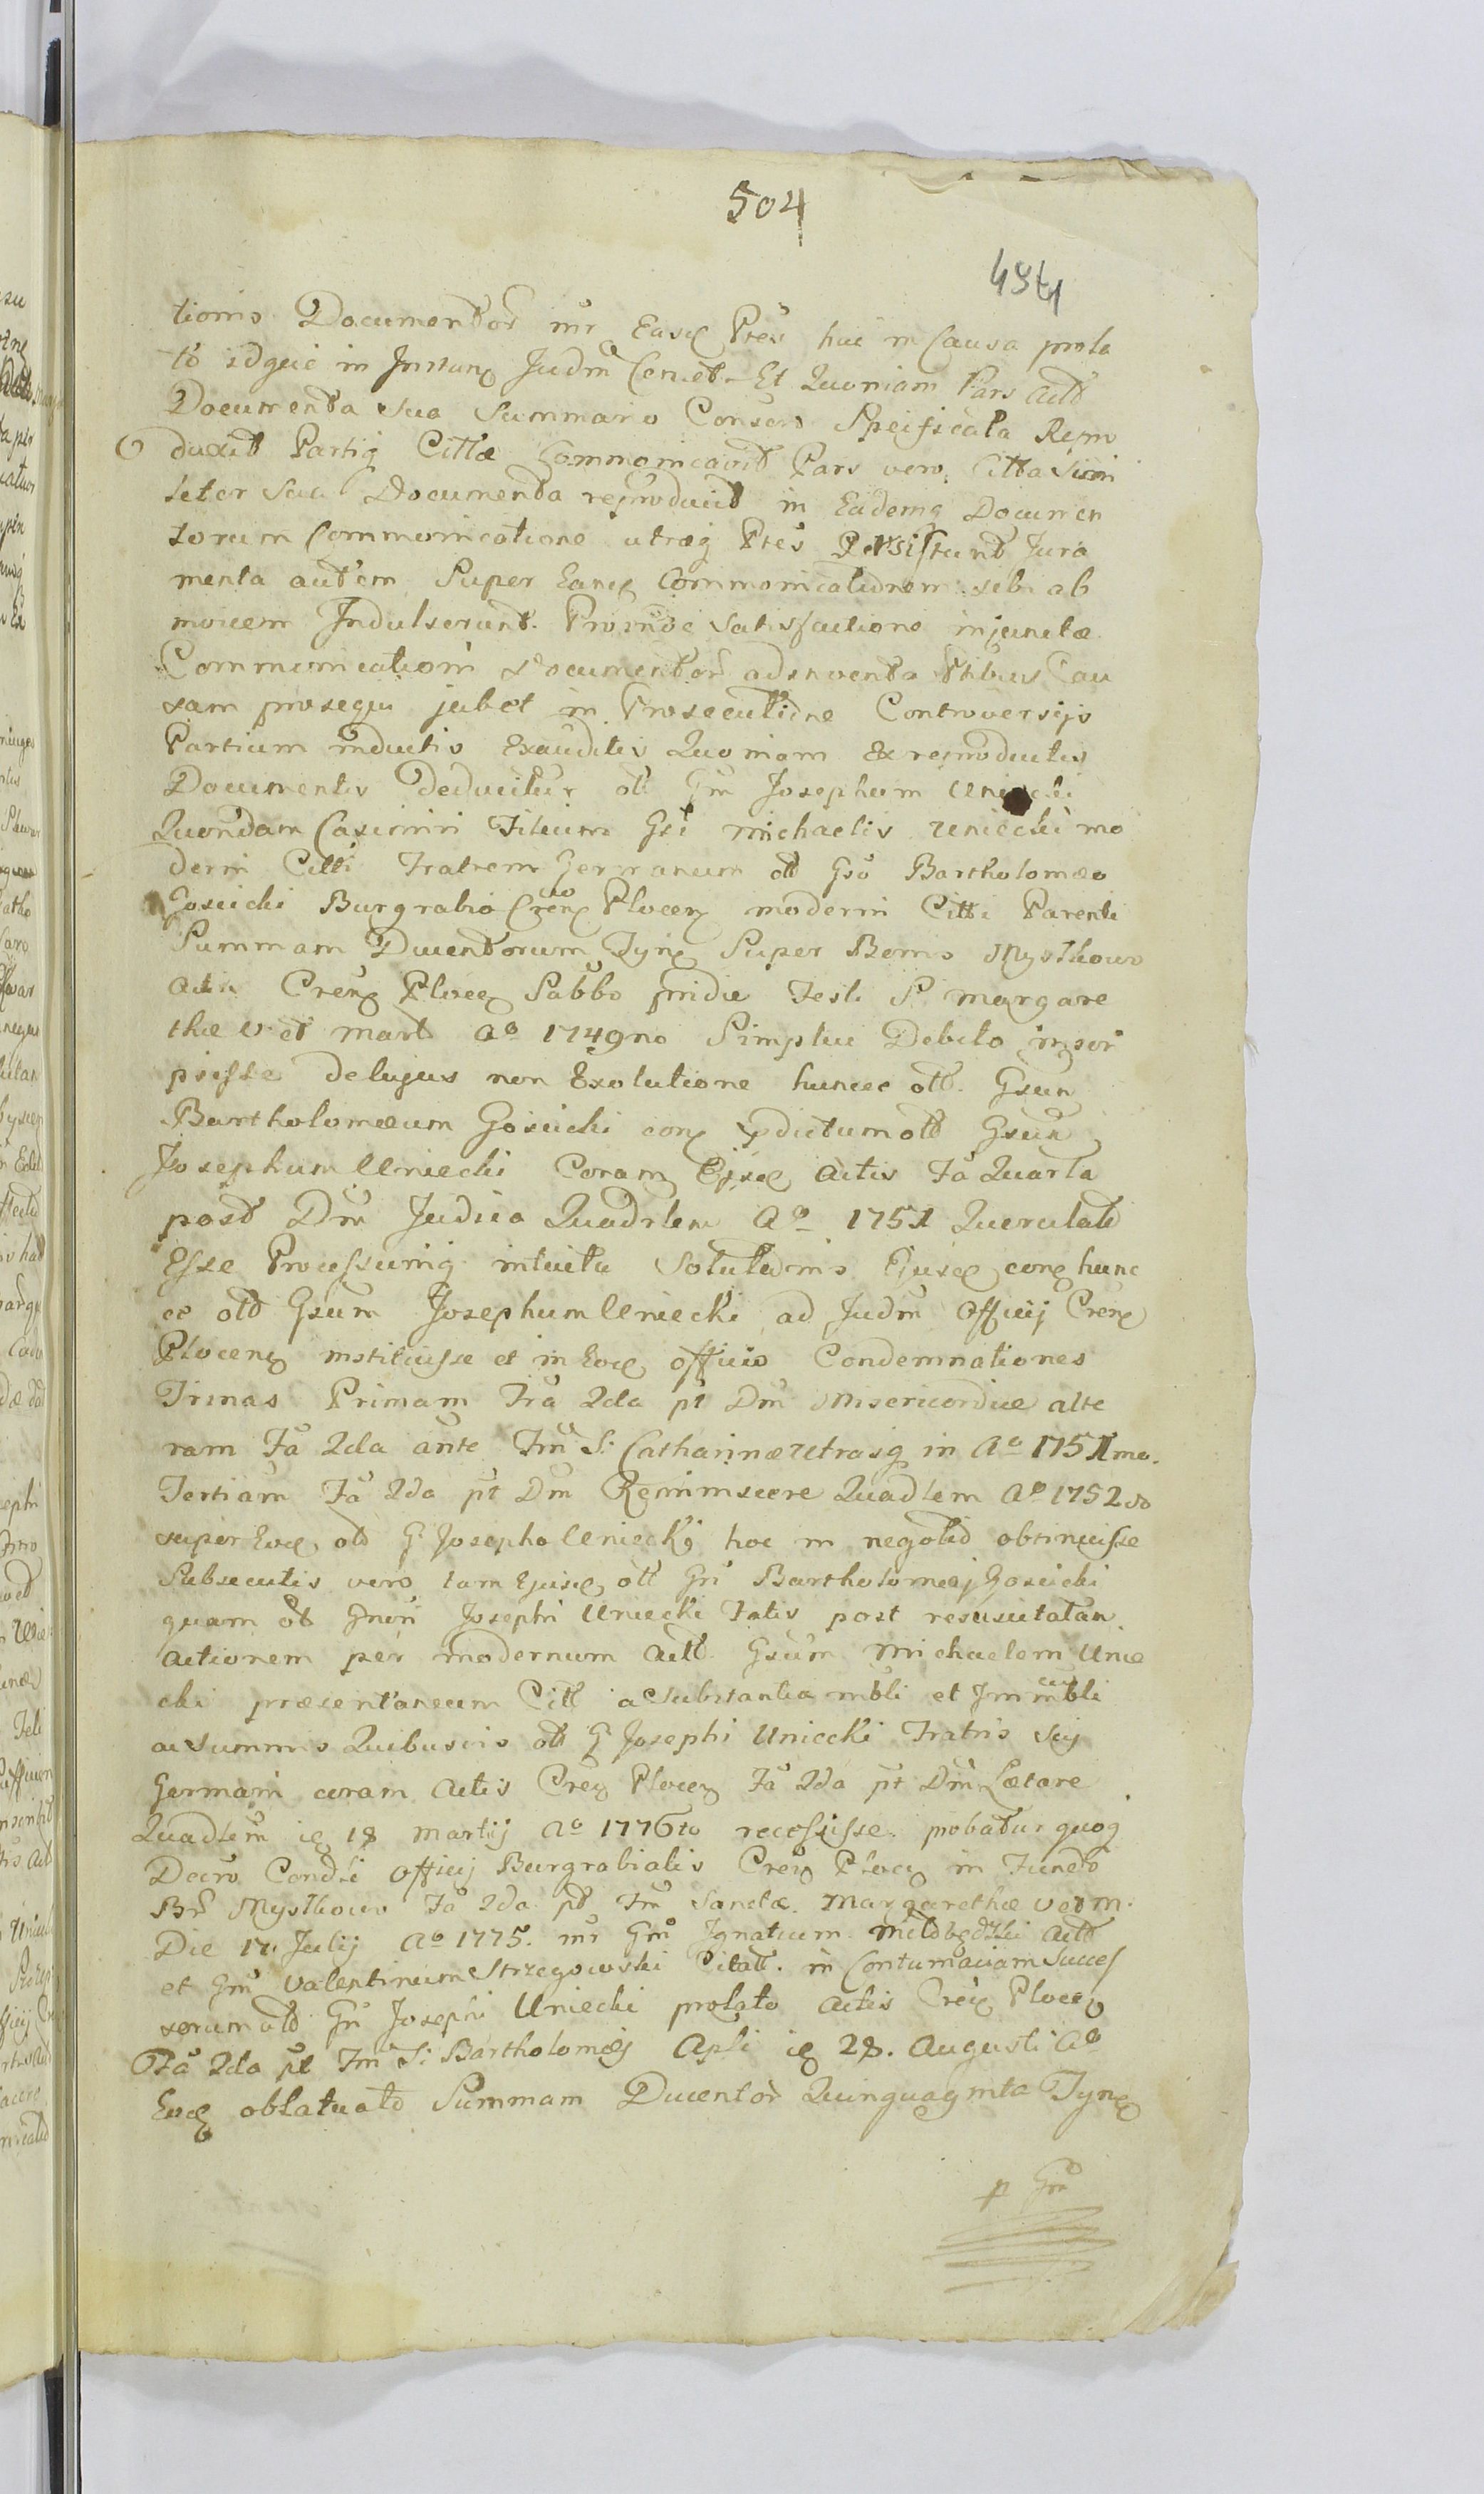 504
484
tionis Documentor inr Easq Ptes huic in Causa prola
to idque in Instanq Judm Censet. Et Quoniam Pars Act
Documenta sua Summario Consens Specificata Repro
duxit Partiq Cittæ Communicavit Pars vero Citta Simi
liter sua Documenta reproducit in Eademq Documen
torum Communicatione utræq Ptes Persistunt Jura
menta autem Super Eanq Communicationem sibi ab
invicem Indulserunt. Proinde Satisfactione injunctæ
Communicationi Documentor adinventa Ptibus Cau
sam prosequi jubet in Prosecutione Controversijs
Partium inductis Exauditis Quoniam Ex reproductis
Documentis Deducitur olt Gm Josephum Uniecki
Quondam Casimiri Filium Gsi Michaelis Uniecki mo
derni Citti Fratrem Germanum olt Gso Bartholomæo
Gosicki Burgrabio Crenq Plocenq moderni Citti Parenti
Summam Ducentorum Tynq Super Bonis Mysłkowo
Actis Crenq Plocenq Sabbo pridie Festi S. Margare
thæ V. et Mart Ao 1749no Simplici Debito inscri
psisse de cujus non Exolutione huncce olt. Gsun
Bartholomæum Gosicki conq pdictum olt Gsun
Josephum Uniecki Coram Ejsq Actis Fa Quarta
post Dm Judica Quadrlem Ao 1751 Querulat
Esse Processumq intuitu Solutionis Ejusq conq hunc
ce olt Gsum Josephum Uniecki ad Judm Officij Crenq
Plocenq instituisse et in Eoq officio Condemnationes
Trinas Primam Fra 2da pt Dm Misericordiæ alte
ram Fa 2da ante Fm S. Catharinæ Utrasq in Ao 1751mo.
Tertiam Fa 2da pt Dm Reminiscere Quadlem Ao 1752do
super Eoq olt G. Josepho Uniecki hoc in negotio obtinuisse
Subsecutis vero tam Ejusq olt Gri Bartholomæj Gosicki
quam olt Gnon Josephi Uniecki Fatis post resuscitatan
actionem per modernum Act. Gsum Michaelem Unie
cki præsentaneum Citt a Substantia mbli et Immbli
ac Summis Quibusvis olt G. Josephi Uniecki Fratris sui
Germani coram Actis Crenq Plocenq Fa 2da pt Dm Lætare
Quadlem iq 18 Martij Ao 1776to recessisse. probatur quoq
Decro Condli Officij Burgrabialis Crenq Plocq in Fundo
Br Mysłkowo Fa 2da pt Fm Sanctæ Margarethæ V et M.
Die 17. Julij Ao 1775. inr Gm Ignatium Act
et Gm Valentinum Strzegowski Citatt. in Contumaciam Succes
sorum olt Gri Josephi Uniecki prolato Actis Crenq Plocenq
Fa 2da pt Fm S. Bartholomæj Apli iq 28. Augusti Ao
Eoq oblatuato Summam Ducentor Quinquaginta Tynq
p Gm